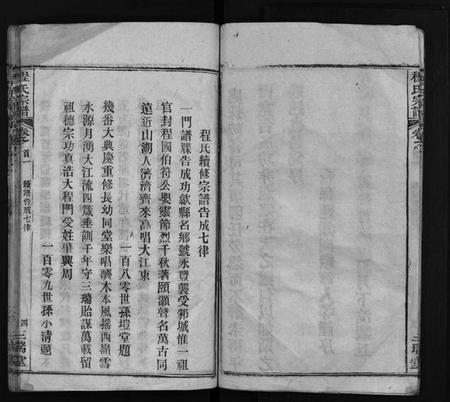 程氏宗譜
卷之首
續譜告成七律
四
三瑞堂
程氏續修宗譜告成七律
一門譜牒告成功歙縣名鄉號永豐襲受郭城惟一祖
官封程國伯符公嬰靈節烈千秋著頤灝聲名萬古同
遠近山湖人濟濟齊來高唱大江東
一百八零世孫塏堂題
幾番大典慶重修長幼同堂樂唱酬木本風搖西嶺雪
水源月湧大江流四箴垂訓千年守三瑞貽謀萬載留
祖德宗功真浩大程門受姓肇興周
一百零九世孫小清題
程氏宗譜
卷之
三瑞堂